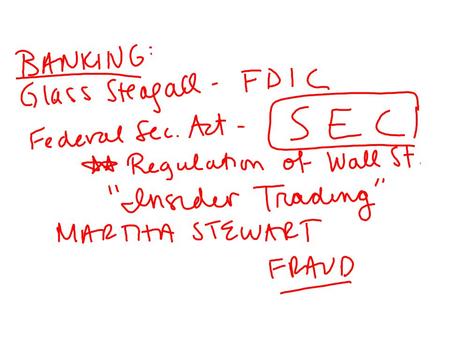 BANKING:
Glass Steagall - FDIC
Federal Sec. Act - SEC
Regulation of Wall St.
"Insider Trading"
MARTHA STEWART
FRAUD